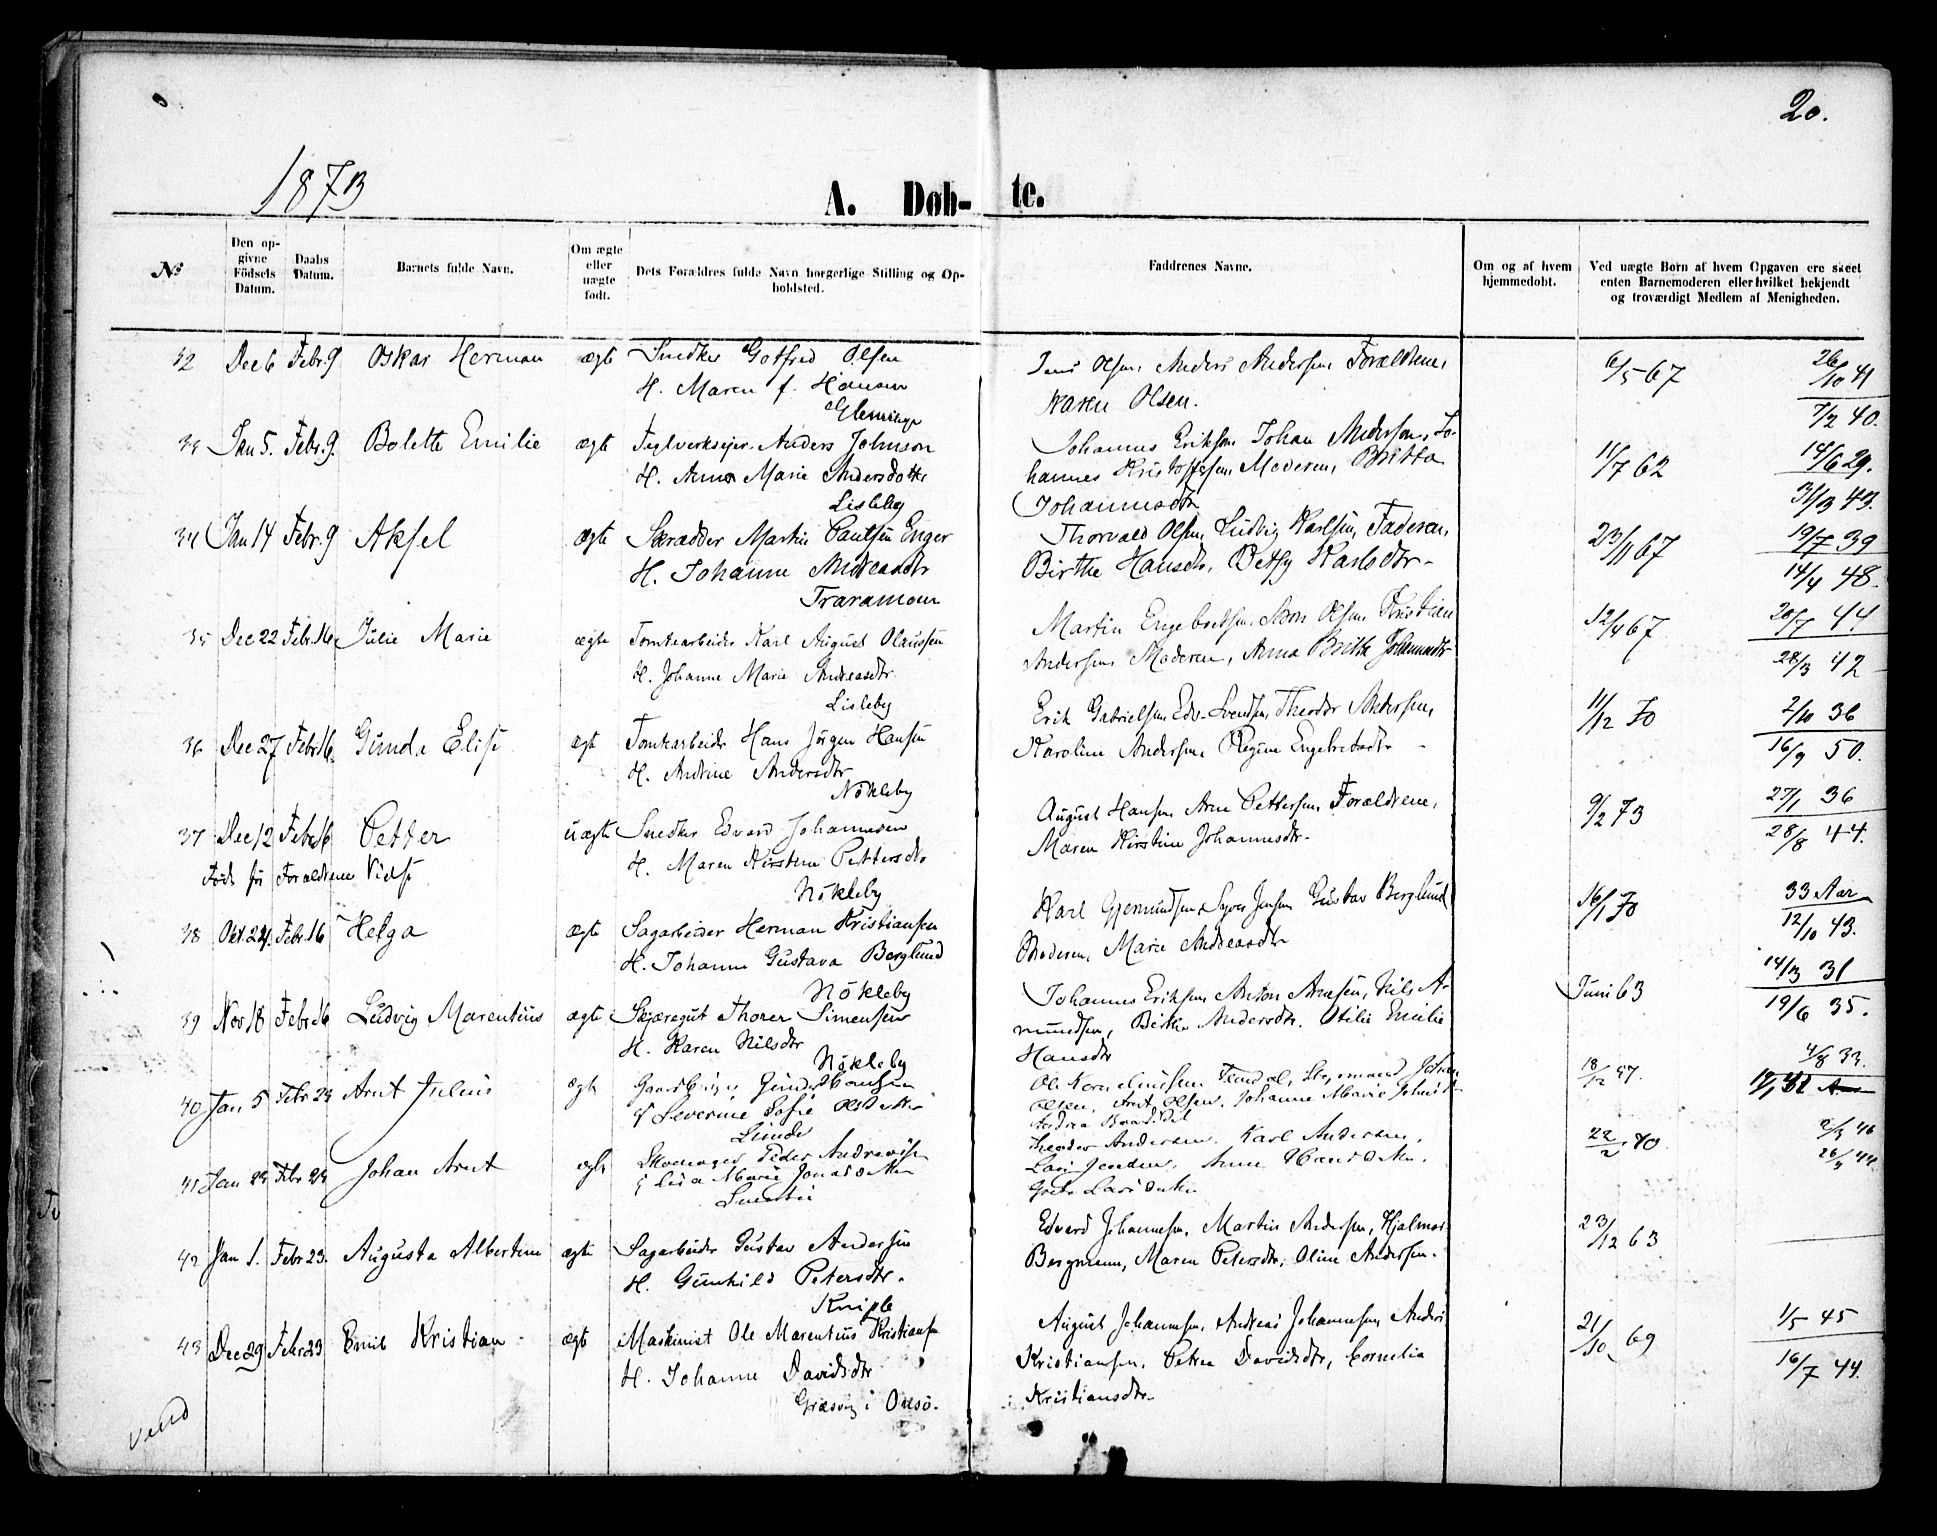 20.
1873
A. Døb- te.
№
Den opgivne Födsels Datum.
Daabs Datum.
Barnets fulde Navn.
Om ægte eller uægte født.
Dets Forældres fulde Navn borgerlige Stilling og Opholdsted.
Faddrenes Navne.
Om og af hvem hjemmedøbt.
Ved uægte Børn af hvem Opgaven ere skeet enten Barnemoderen eller hvilket bekjendt og troværdigt Medlem af Menigheden.
32 Dec 6 Febr. 9 Oskar Herman ægte Snedker Gotfred Olsen
H. Maren f. Hansen
Glemminge
Jens Olsen, Anders Andersen, Forældrene,
Karen Olsen.
6/5 67
26/10 41
7/2 40.
33 Jan 5. Febr. 9. Bolette Emilie ægte Teglverksejer Anders Johnson
H. Anna Marie Andersdotter
Lisleby
Johannes Eriksen, Johan Andersen, Jo-
hannes Kristoffersen, Moderen, Britta
Johannesdtr
11/7 62
14/6 29.
31/3 43.
34 Jan 14 Febr. 9 Aksel ægte Skrædder Martin Paulsen Enger
H. Johanne Andreasdtr
Traramoen
Thorvald Olsen, Ludvig Karlsen, Faderen,
Birthe Hansdtr, Betsy Karlsdtr
23/11 67
19/7 39
14/4 48.
35 Dec 22 Febr. 16 Julie Marie ægte Tomtearbeider Karl August Olaussen
H. Johanne Marie Andreasdtr
Lisleby
Martin Engebretsen, Olsen, Kristian
Andersen, Moderen, Anna Brithe Johannesdtr
12/4 67
20/7 44.
28/3 42
36 Dec 27 Febr 16. Gunda Elise ægte Tomtearbeider Hans Jørgen Hansen
H. Andrine Andersdtr
Nökleby
Erik Gabrielsen, Edv. Svendsen, Theodor Andersen,
Karoline Andersen, Regine Engebretsdtr
11/12 70
2/10 36
16/9 50.
37 Dec 12 Febr 16 Petter uægte Snedker Edvard Johannesen
Født før Forældrene Vielse
H. Maren Kirstine Pettersdtr
Nökleby
August Hansen, Arne Pettersen, Forældrene,
Maren Kirstine Johannesdtr
9/2 73
27/1 36
28/8 44.
38 Okt. 24. Febr. 16 Helga ægte Sagarbeider Herman Kristiansen
H. Johanne Gustava Berglund
Nökleby
Karl Gjermundsen, Syver Jensen, Gustav Berglund
Moderen, Marie Andreasdtr
16/1 70
33 Aar
12/10 43.
39 Nov 18 Febr 16 Ludvig Marentius ægte Skjæregut Thorer Simensen
H. Karen Nilsdtr
Nökleby
Johannes Eriksen, Anton Arnesen, Nils A-
mundsen, Birthe Andersdtr. Otilie Emilie
Hansdtr
Juni 63
14/3 31
19/6 35.
40 Jan 5 Febr 23 Arnt Julius ægte Hansen
Severine Sofie Olsdatter
Lunde
Ole Kornelius
Olsen, Arnt Olsen, Johanne Marie
18/12 57.
4/8 33.
41 Jan 23 Febr 23 Johan Arnt ægte Peder Andreas
Lisa Marie Jonasdatter
Theodor Andersen, Karl Andersen,
Lars Jensen, Anne Hansdatter,
Grete Larsdatter
22/2 70
26/9 44.
42 Jan 1. Febr 23. Augusta Albertine ægte Sagarbeider Gustav Andersen
H. Gunhild Petersdtr.
Kniple
Edvard Johannesen, Martin Andersen, Hjalmar
Bergmann, Maren Petersdtr, Oline Andersen.
23/12 63
43 Dec 29 Febr 23 Emil Kristian ægte Maskinist Ole Marentius Kristiansen
H. Johanne Davidsdtr
Græsvig i Onsö.
August Johannesen, Andreas Johannesen, Anders
Kristiansen, Petra Davidsdtr, Cornelia
Kristiansdtr
21/10 69
1/5 45
16/7 44.
vend